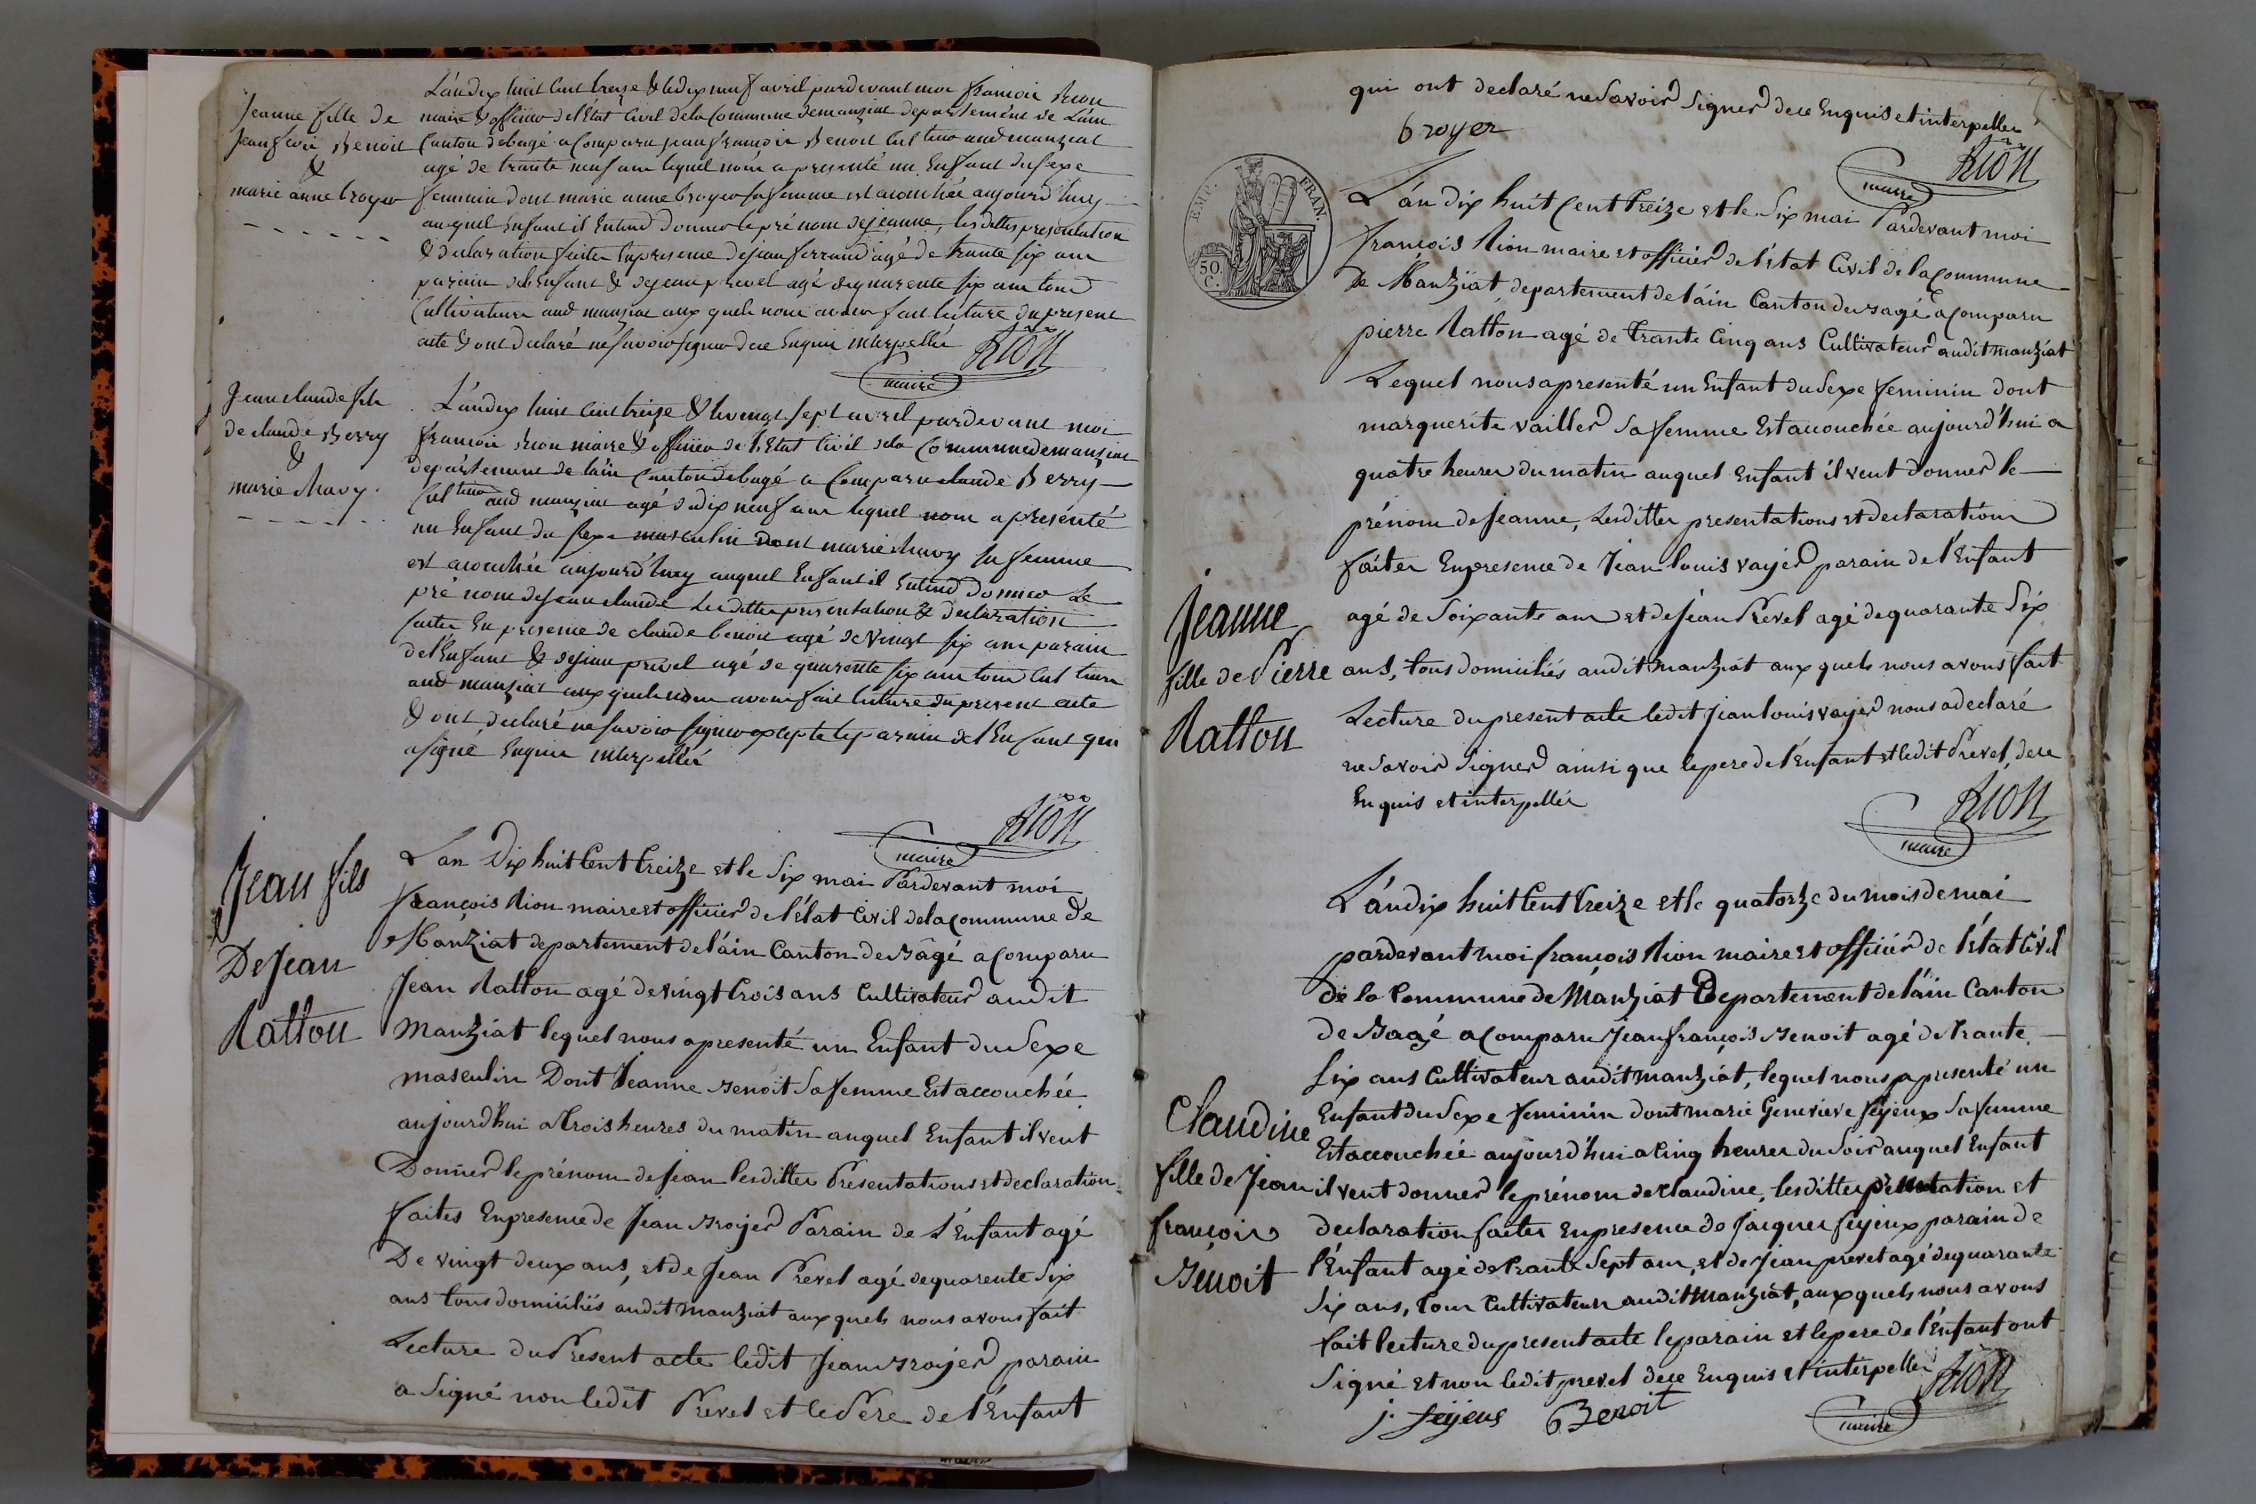 L'an dix huit cent treize & le dix neuf avril pardevant moi françois Rion
maire & officier de l'état Civil de la Commune de manziat departement de L'ain
Canton de bagé a Comparu jean françois Benoit Cul teur aud manziat
agé de trante neuf ans lequel nous a presenté un Enfant du sexe
feminin dont marie anne broyer sa femme est acouchée aujourd'huy
auquel Enfant il Entend donner le pré nom de jeanne, les dittes presentation
& declaration faites En presence de jean ferrand agé de trante six ans
parain de l'Enfant & de jean prevel agé de quarente six ans tous
Cultivateurs aud manziat aux quels nous avons fait lecture du present
acte & ont declaré ne savoir signer de ce Enquis interpellés
RION
maire
Jeanne fille de
Jean fcois Benoit
&
marie anne broyer
L'an dix huit cent treize & le vingt sept avril pardevant moi
françois Rion maire & officier de l'Etat Civil de la Commune de manziat
departement de l'ain Canton de bagé a Comparu claude Berry
Cul teur aud manziat agé de dix neuf ans lequel nous a présénté
un Enfant du sexe masculin dont marie chavy sa femme
est acouchée aujourd'huy auquel Enfant il Entend donner Le
pré nom de jean claude Les dittes presentation & declaration
faites En presence de claude benoit agé de vingt six ans parain
de l'Enfant & de jean prevel agé de quarente six ans tous cul teurs
aud manziat aux quels nous avons fait lecture du present acte
& ont declaré ne savoir signer excepte le parain de l'Enfant qui
a signé Enquis interpellés
RION
maire
Jean claude fils
de claude Berry
&
marie chavy
L'an Dix huit Cent treize et le Six mai Pardevant moi
françois Rion maire et officier de l'état Civil de la Commune de
Manziat departement de l'áin Canton de Bâgé a Comparu
Jean Ratton agé de vingt trois ans Cultivateur audit
Manziat lequel nous a presenté un Enfant du Sexe
masculin Dont Jeanne Benoit Sa femme Est accouchée
aujourd'hui a trois heures du matin auquel Enfant il veut
Donner le prénom de Jean lesdittes Presentations et declaration
faites En presence de Jean Broyer Parain de L'Enfant agé
De vingt deux ans, et de Jean Prevel agé de quarente Six
ans tous domiciliés audit Manziat aux quels nous avons fait
Lecture du Present acte ledit Jean Broyer parain
a Signé non ledit Prevel et le Pere de l'Enfant
Jean fils
De Jean
Ratton
qui ont declaré ne Savoir Signer de ce Enquis et interpellés
broyer
RION
maire
EMP. FRAN.
50.
C.
L'án dix huit Cent treize et le Six mai Pardevant moi
françois Rion maire et officier de l'état Civil de la Commune
de Manziat, departement de l'áin Canton de Bagé a Comparu
pierre Ratton agé de trante Cinq ans Cultivateur audit Manziat
Lequel nous a presenté un Enfant du Sexe feminin dont
marguerite vailler Sa femme Est accouchée aujourd'hui a
quatre heures du matin auquel Enfant il veut donner le
prénom de Jeanne, Lesdittes presentations et declaration
faites En presence de Jean louis vayer parain de l'Enfant
agé de Soixante ans et de Jean Prevel agé de quarante Six
ans, tous domiciliés audit Manziat aux quels nous avons fait
Lecture du present acte ledit Jean louis vayer nous a declaré
ne Savoir Signer ainsi que le pere de l'Enfant et ledit Prevel, de ce
Enquis et interpellés
RION
maire
Jeanne
fille de Pierre
Ratton
L'án dix huit Cent treize et le quatorze du mois de mai
pardevant moi françois Rion maire et officiér de l'état Civil
de la Commune de Manziat Departement de l'áin Canton
de Bagé a Comparu Jean françois Benoit agé de trante
Six ans Cultivateur audit Manziat, lequel nous a presenté un
Enfant du Sexe feminin dont marie Genevieve fejeux Sa femme
Est accouchée aujourd'hui a Cinq heures du Soir auquel Enfant
il veut donner le prénom de Claudine, lesdittes presentation et
declaration faites en presence de Jacques fejeux parain de
l'Enfant agé de trante Sept ans, et de Jean prevel agé de quarante
Six ans, tous Cultivateurs audit Manziat, aux quels nous avons
fait lecture du present acte le parain et le pere de l'Enfant ont
Signé et non ledit prevel de ce Enquis et interpellés
RION
maire
j. fejeux Benoit
Claudine
fille de Jean
françois
Benoit